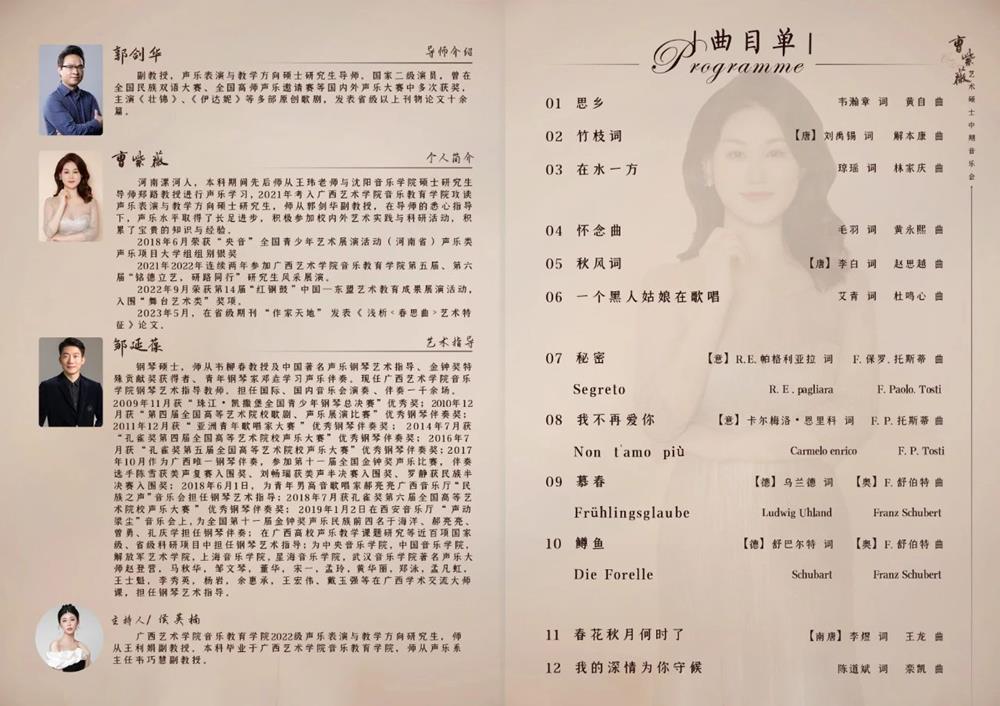 郭剑华 导师介绍
副教授，声乐表演与教学方向硕士研究生导师，国家二级演员，曾在
全国民族双语大赛、全国高师声乐邀请赛等国内外声乐大赛中多次获奖，
主演《壮锦》、《伊达妮》等多部原创歌剧，发表省级以上刊物论文十余
篇。
曹紫薇 个人简介
河南漯河人，本科期间先后师从王玮老师与沈阳音乐学院硕士研究生
导师郑路教授进行声乐学习，2021年考入广西艺术学院音乐教育学院攻读
声乐表演与教学方向硕士研究生，师从郭剑华副教授，在导师的悉心指导
下，声乐水平取得了长足进步，积极参加校内外艺术实践与科研活动，积
累了宝贵的知识与经验。
2018年6月荣获“央音”全国青少年艺术展演活动（河南省）声乐类
声乐项目大学组组别银奖
2021年2022年连续两年参加广西艺术学院音乐教育学院第五届、第六
届“铭德立艺，研路同行”研究生风采展演。
2022年9月荣获第14届“红铜鼓”中国—东盟艺术教育成果展演活动，
入围“舞台艺术类”奖项。
2023年5月，在省级期刊“作家天地”发表《浅析<春思曲>艺术特
征》论文。
邹延葆 艺术指导
钢琴硕士，师从韦柳春教授及中国著名声乐钢琴艺术指导、金钟奖特
殊贡献奖获得者、青年钢琴家邓垚学习声乐伴奏。现任广西艺术学院音乐
学院钢琴艺术指导教师。担任国际、国内音乐会演奏、伴奏一千余场。
2009年11月获“珠江·凯撒堡全国青少年钢琴总决赛”优秀奖；2010年12
月获“第四届全国高等艺术院校歌剧、声乐展演比赛”优秀钢琴伴奏奖；
2011年12月获“亚洲青年歌唱家大赛”优秀钢琴伴奏奖；2014年7月获
“孔雀奖第四届全国高等艺术院校声乐大赛”优秀钢琴伴奏奖；2016年7
月获“孔雀奖第五届全国高等艺术院校声乐大赛”优秀钢琴伴奏奖；2017
年10月作为广西唯一钢琴伴奏，参加第十一届全国金钟奖声乐比赛，伴奏
选手陈雪获美声复赛入围奖、刘畅瑞获美声半决赛入围奖、罗静获民族半
决赛入围奖；2018年6月1日，为青年男高音歌唱家郝亮亮广西音乐厅“民
族之声”音乐会担任钢琴艺术指导；2018年7月获孔雀奖第六届全国高等艺
术院校声乐大赛”优秀钢琴伴奏奖；2019年1月2日在西安音乐厅“声动
梁尘”音乐会上，为全国第十一届金钟奖声乐民族前四名于海洋、郝亮亮、
曾勇、孔庆学担任钢琴伴奏；在广西高校声乐教学课题研究等近百项国家
级、省级科研项目中担任钢琴艺术指导；为中央音乐学院，中国音乐学院，
解放军艺术学院，上海音乐学院，星海音乐学院，武汉音乐学院著名声乐大
师赵登营，马秋华，邹文琴，董华，宋一，孟玲，黄华丽，郑泳，孟凡虹，
王士魁，李秀英，杨岩，余惠承，王宏伟、戴玉强等在广西学术交流大师
课，担任钢琴艺术指导。
主持人/侯英楠
广西艺术学院音乐教育学院2022级声乐表演与教学方向研究生，师
从王利娟副教授，本科毕业于广西艺术学院音乐教育学院，师从声乐系
主任韦巧慧副教授。
曲目单
Programme
曹紫薇 艺术硕士中期音乐会
01 思乡 韦瀚章 词 黄自 曲
02 竹枝词 【唐】刘禹锡 词 解本康 曲
03 在水一方 琼瑶 词 林家庆 曲
04 怀念曲 毛羽 词 黄永熙 曲
05 秋风词 【唐】李白 词 赵思越 曲
06 一个黑人姑娘在歌唱 艾青 词 杜鸣心 曲
07 秘密 【意】R.E.帕格利亚拉 词 F.保罗.托斯蒂 曲
Segreto R. E . pagliara F. Paolo. Tosti
08 我不再爱你 【意】卡尔梅洛·恩里科 词 F. P. 托斯蒂 曲
Non t'amo più Carmelo enrico F. P. Tosti
09 慕春 【德】乌兰德 词 【奥】F. 舒伯特 曲
Frühlingsglaube Ludwig Uhland Franz Schubert
10 鳟鱼 【德】舒巴尔特 词 【奥】F. 舒伯特 曲
Die Forelle Schubart Franz Schubert
11 春花秋月何时了 【南唐】李煜 词 王龙 曲
12 我的深情为你守候 陈道斌 词 栾凯 曲